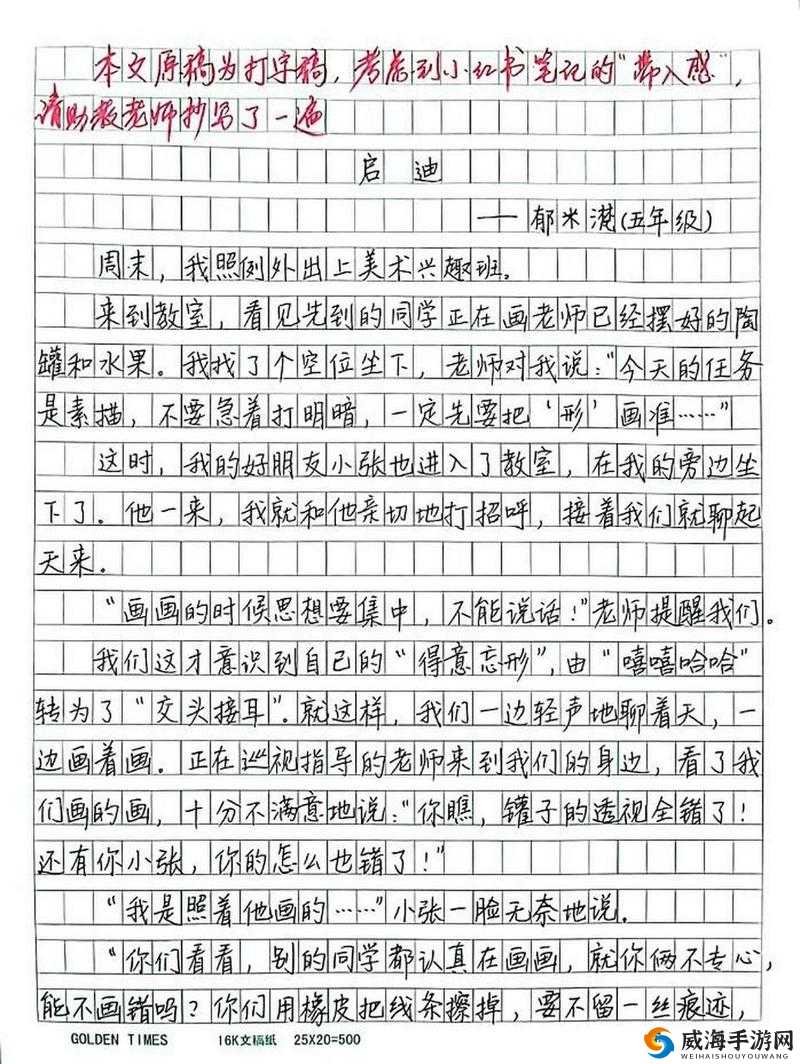 本文原稿为打字稿，考虑到小红书笔记的“带入感”，
请助教老师抄写了一遍
启迪
——郁米港(五年级)
周末，我照例外出上美术兴趣班。
来到教室，看见先到的同学正在画老师已经摆好的陶
罐和水果。我找了个空位坐下，老师对我说：“今天的任务
是素描，不要急着打明暗，一定先要把‘形’画准……”
这时，我的好朋友小张也进入了教室，在我的旁边坐
下了。他一来，我就和他亲切地打招呼，接着我们就聊起
天来。
“画画的时候思想要集中，不能说话！”老师提醒我们。
我们这才意识到自己的“得意忘形”，由“嘻嘻哈哈”
转为了“交头接耳”。就这样，我们一边轻声地聊着天，一
边画着画。正在巡视指导的老师来到我们的身边，看了我
们画的画，十分不满意地说：“你瞧，罐子的透视全错了！
还有你小张，你的怎么也错了！”
“我是照着他画的……”小张一脸无奈地说。
“你们看看，别的同学都认真在画画，就你俩不专心，
能不画错吗？你们用橡皮把线条擦掉，要不留一丝痕迹，
GOLDEN TIMES 16K文稿纸 25X20=500
威海手游网
WEIHAISHOUYOUWANG